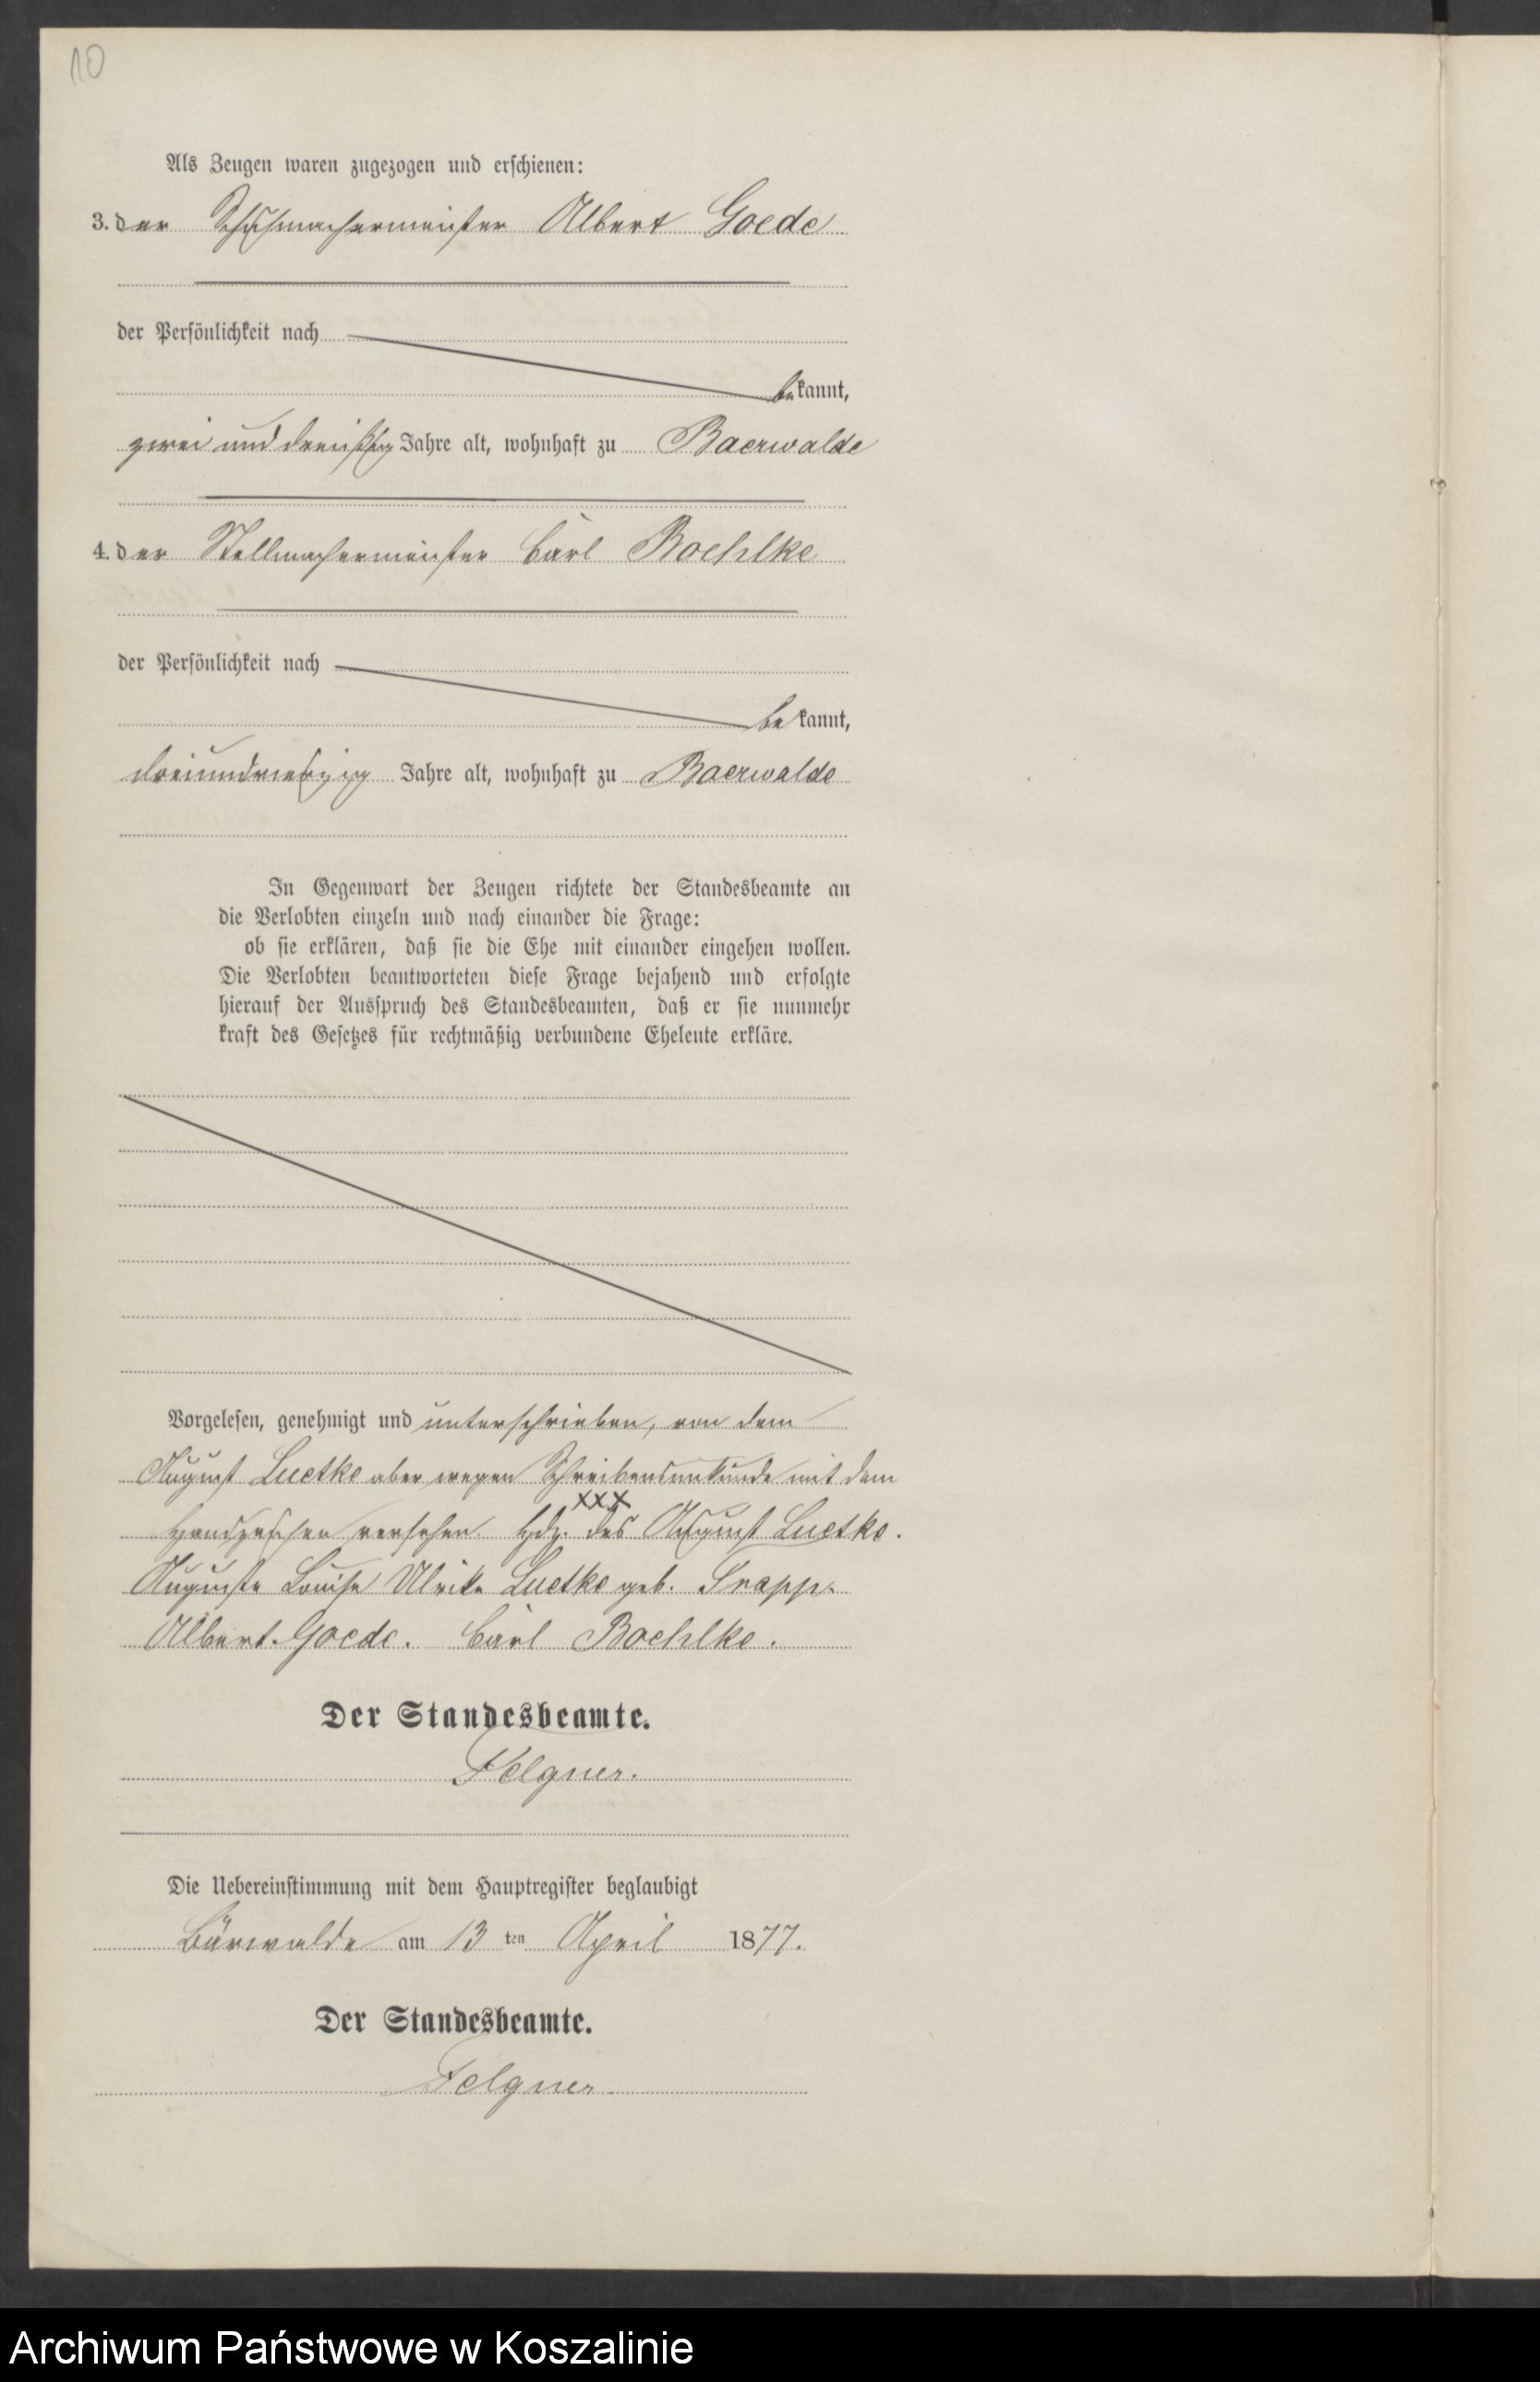 10
Als Zeugen waren zugezogen und erschienen:
3. der Schuhmachermeister Albert Goede
der Persönlichkeit nach
bekannt,
zwei und dreißig Jahre alt, wohnhaft zu Baerwalde
4. der Stellmachermeister Carl Boehlke
der Persönlichkeit nach
bekannt,
dreiundvierzig Jahre alt, wohnhaft zu Baerwalde
In Gegenwart der Zeugen richtete der Standesbeamte an
die Verlobten einzeln und nach einander die Frage:
ob sie erklären, daß sie die Ehe mit einander eingehen wollen.
Die Verlobten beantworteten diese Frage bejahend und erfolgte
hierauf der Ausspruch des Standesbeamten, daß er sie nunmehr
kraft des Gesetzes für rechtmäßig verbundene Eheleute erkläre.
Vorgelesen, genehmigt und unterschrieben, von dem
August Luetke aber wegen Schreibensunkunde mit dem
xxx
Handzeichen versehen. Hdz. des August Luetke.
Auguste Louise Ulrike Luetke geb. Snapp.
Albert Goede. Carl Boehlke.
Der Standesbeamte.
Felgner.
Die Uebereinstimmung mit dem Hauptregister beglaubigt
Bärwalde am 13 ten April 1877.
Der Standesbeamte.
Felgner
Archiwum Państwowe w Koszalinie